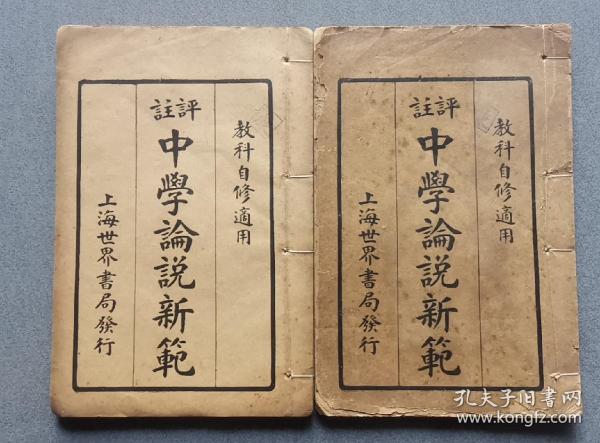 教科自修適用
評註
中學論説新範
上海世界書局發行
教科自修適用
評註
中學論説新範
上海世界書局發行
孔夫子旧书网
www.kongfz.com